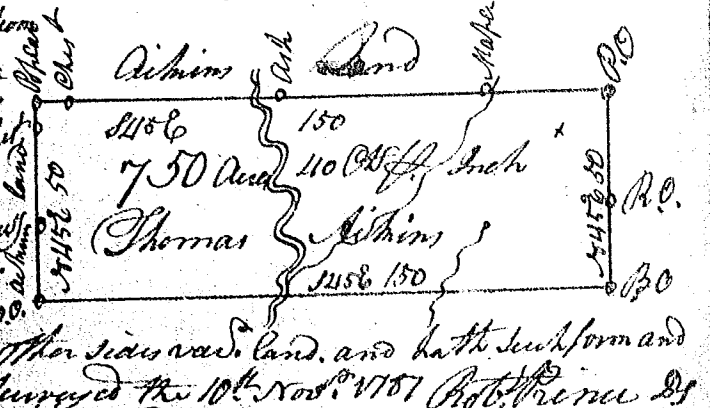 Poplar
Chest
Ash
Maple
P.O
Aitkins Land
S45E 150
750 Acres 40 Chs pr. Inch
Thomas Aitkins
S45E 150
N45E 50
N45E 50
R.O.
B.O
Aitkins land
other sides vact. land. and hath such form and
surveyed the 10th Novr. 1787 Robt. Prince DS